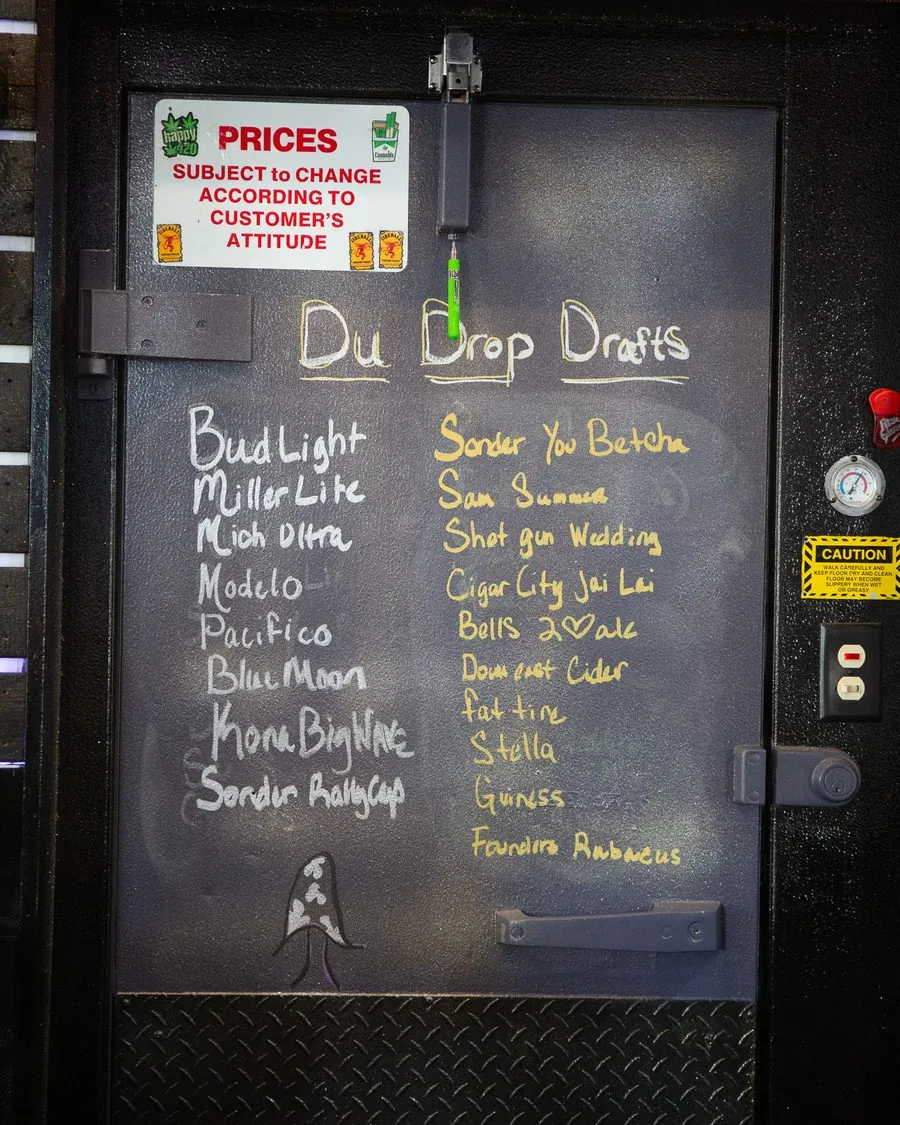 happy
420
PRICES
Cannabis
SUBJECT to CHANGE
ACCORDING TO
CUSTOMER'S
ATTITUDE
FIREBALL
FIREBALL
FIREBALL
Du Drop Drafts
Bud Light
Miller Lite
Mich Ultra
Modelo
Pacifico
Blue Moon
Kona Big WAVE
Sonder RallyCap
Sonder You Betcha
Sam Summer
Shot gun Wedding
Cigar City Jai Lai
Bells 2♡ale
Down east Cider
fat tire
Stella
Guiness
Founders Rubaeus
CAUTION
WALK CAREFULLY AND
KEEP FLOOR DRY AND CLEAN.
FLOOR MAY BECOME
SLIPPERY WHEN WET
OR GREASY.